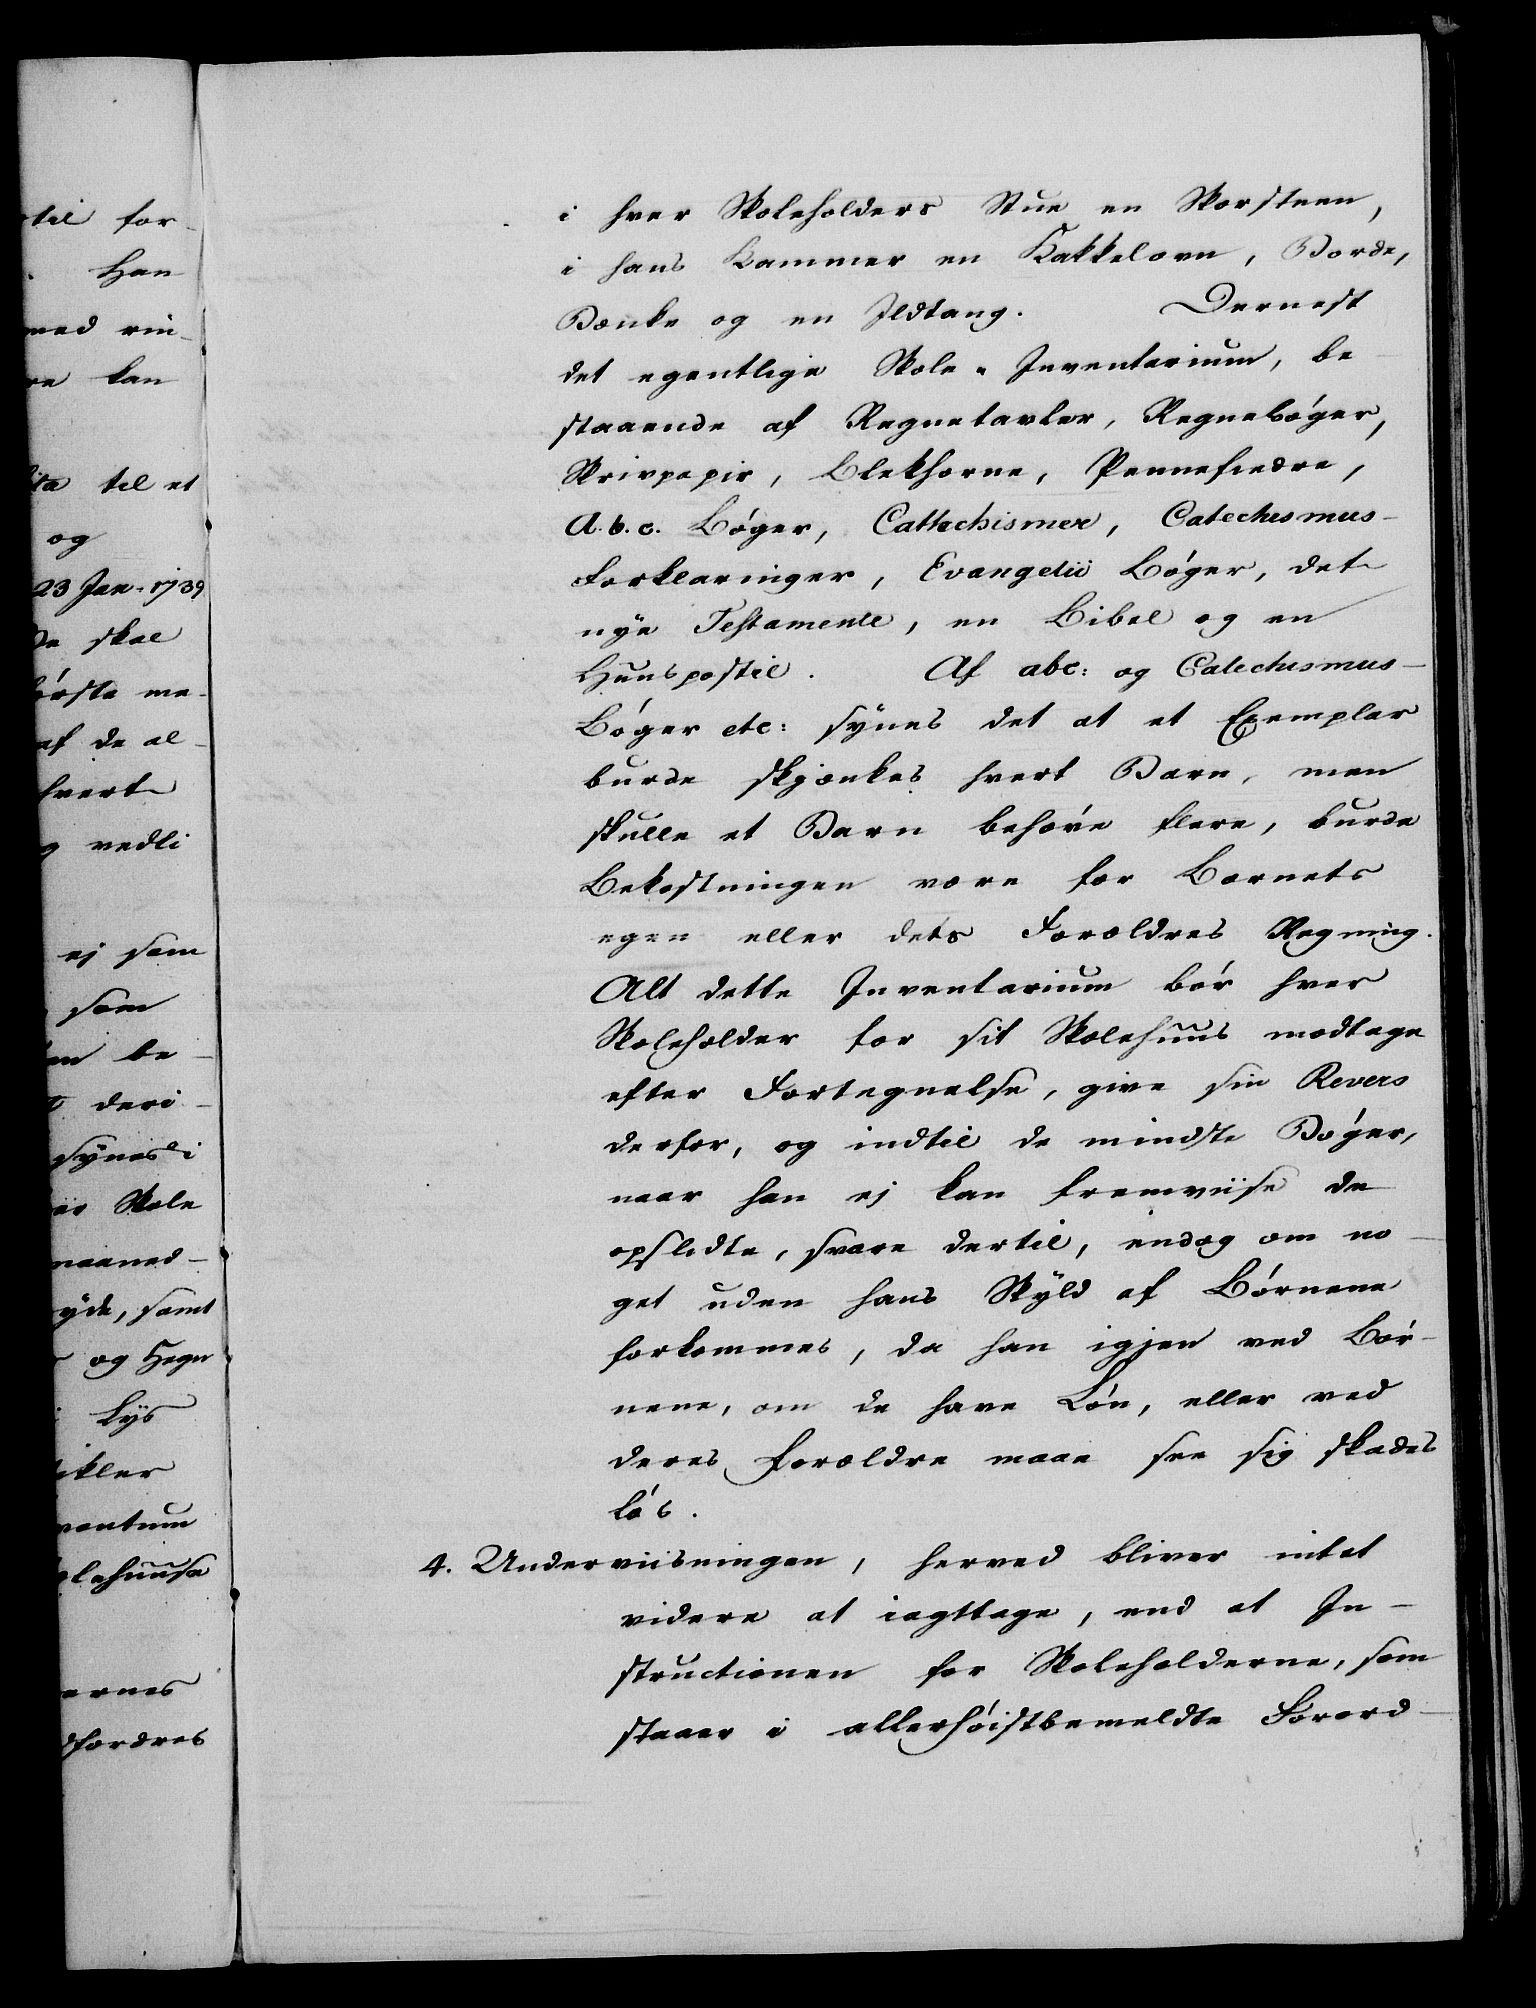 til for-
Han
med vin-
re kan
til et
og
23 Jan. 1739
De skal
første me-
af de al-
hvert
vedli
ej som
som
be-
deri-
synes i
Skole
maaned-
yde, samt
og Hegn
lys
ikler
ventum
olehuusa
ernes
dfordres
i hver Skoleholders Stue en Skorsteen,
i hans Kammer en Kakkelovn, Borde,
Bænke og en Ildtang. Dernest
det egentlige Skole-Inventarium, be-
staaende af Regnetavler, Regnebøger,
Skrivpapir, Blekhorne, Pennefiedre,
A.b.c. Bøger, Cathechismer, Catechismus-
Forklaringer, Evangelii Bøger, det
nye Testamente, en Bibel og en
Huuspostil. Af abc: og Catechismus-
Bøger etc: synes det at et Exemplar
burde skjænkes hvert Barn, men
skulle et Barn behøve flere, burde
Bekostningen være for Barnets
egen eller dets Forældres Regning.
Alt dette Inventarium bør hver
Skoleholder for sit Skolehuus modtage
efter Fortegnelse, give sin Revers
derfor, og indtil de mindste Bøger,
naar han ej kan fremviise de
opslidte, svare dertil, endog om no-
get uden hans Skyld af Børnene
forkommes, da han igjen ved Bør-
nene, om de have Løn, eller ved
deres Forældre maae see sig skades
løs.
4. Underviisningen, herved bliver intet
videre at iagttage, end at In-
structionen for Skoleholderne, som
staaer i allerhøistbemeldte Forord-